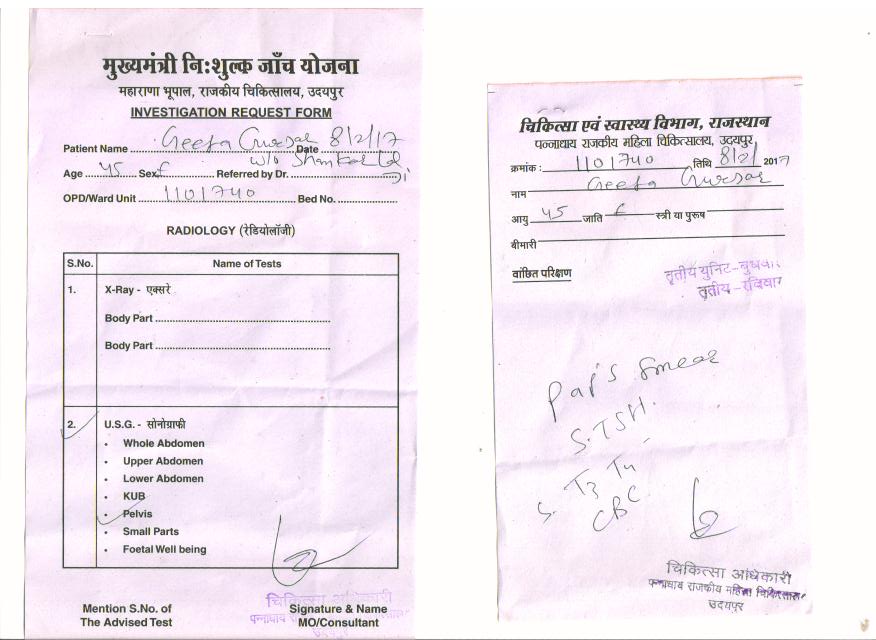 मुख्यमंत्री नि:शुल्क जाँच योजना
महाराणा भूपाल, राजकीय चिकित्सालय, उदयपुर
INVESTIGATION REQUEST FORM
Patient Name Geeta Date 8/2/17
w/o Shankar
Age 45 Sex f Referred by Dr.
OPD/Ward Unit 1101740 Bed No.
RADIOLOGY (रेडियोलॉजी)
S.No. Name of Tests
1. X-Ray - एक्सरे
Body Part
Body Part
2. U.S.G. - सोनोग्राफी
• Whole Abdomen
• Upper Abdomen
• Lower Abdomen
• KUB
• Pelvis
• Small Parts
• Foetal Well being
चिकित्सा अधिकारी
Mention S.No. of
The Advised Test
Signature & Name
MO/Consultant
उदयपुर
चिकित्सा एवं स्वास्थ्य विभाग, राजस्थान
पन्नाधाय राजकीय महिला चिकित्सालय, उदयपुर
क्रमांक : 1101740 तिथि 8/2/ 2017
नाम Geeta
आयु 45 जाति f स्त्री या पुरूष
बीमारी
वांछित परिक्षण
तृतीय युनिट-बुधवार
तृतीय-रविवार
Pap's Smear
S. TSH.
S. T3 T4
CBC
चिकित्सा अधिकारी
पन्नाधाय राजकीय महिला चिकित्सालय
उदयपुर